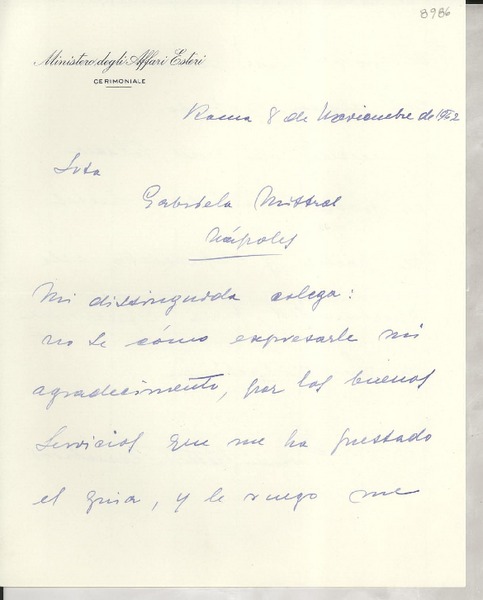 8986
Ministero degli Affari Esteri
CERIMONIALE
Roma 8 de Noviembre de 1952
Srta
Gabriela Mistral
Nápoles
Mi distinguida colega:
no se cómo expresarle mi
agradecimiento, por los buenos
servicios que me ha prestado
el guía, y le ruego me